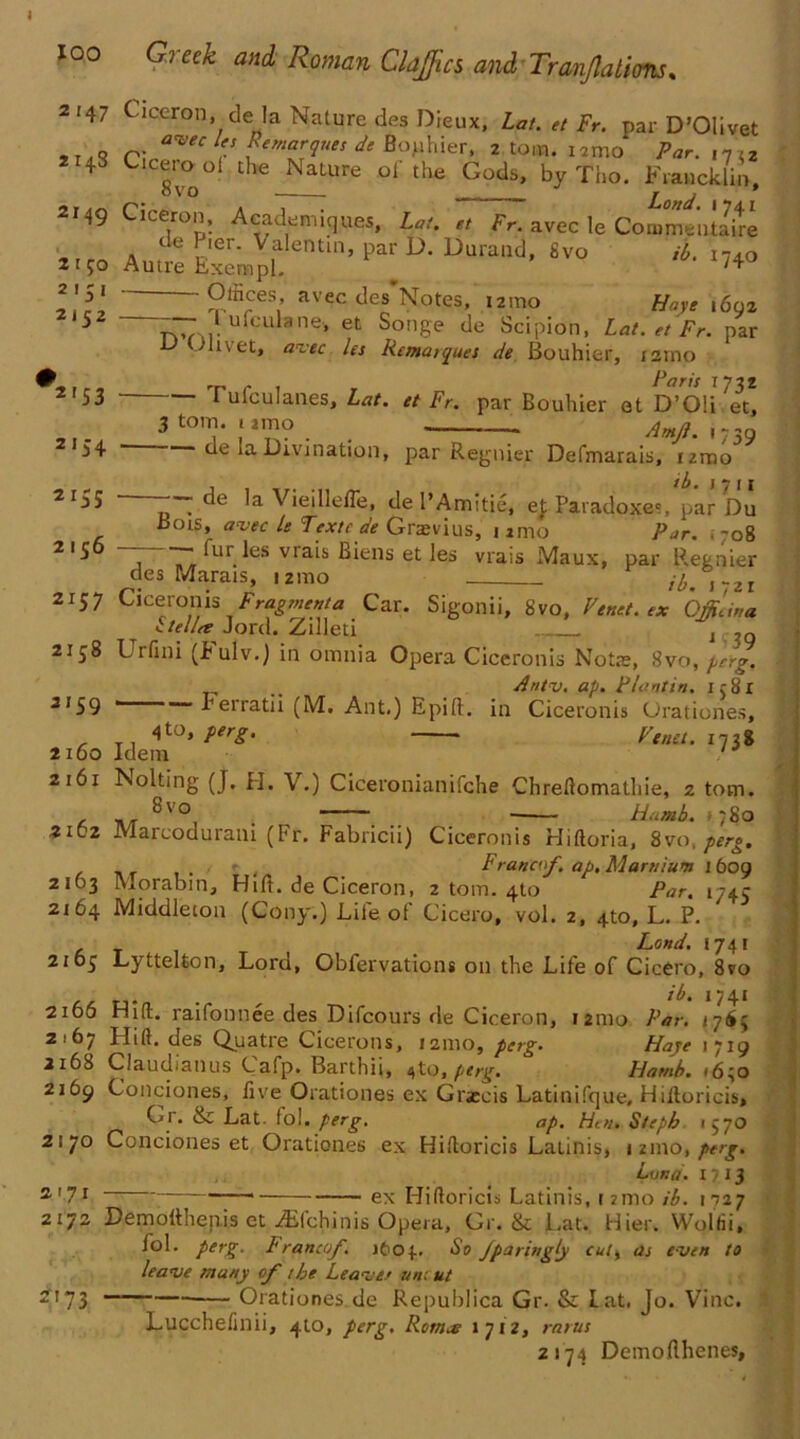 100 Greek and Roman Claſſics and Tranſlations.
2147 Ciceron, de la Nature des Dieux, Lat. et Fr. par D'Olivet
avec les Remarques de Bouhier, 2 tom. 12mo Par. 1732
2148 Cicero of the Nature of the Gods, by Tho. Francklin,
8vo —— —— Lond. 1741
2149 Ciceron, Academiques, Lat. et Fr. avec le Commentaire
de Pier. Valentin, par D. Durand, 8vo ib. 1740
2150 Autre Exempl.
2151 —— Offices, avec des Notes, 12mo Haye 1692
2152 —— Tuſculane, et Songe de Scipion, Lat. et Fr. par
D'Olivet, avec les Remarques de Bouhier, 12mo
Paris 1732
2153 —— Tuſculanes, Lat. et Fr. par Bouhier et D'Olivet,
3 tom. 12mo —— Amſt. 1739
2154 —— de la Divination, par Regnier Deſmarais, 12mo
ib. 1711
2155 —— de la Vieilleſſe, de l'Amitié, et Paradoxes, par Du
Bois, avec le Texte de Grævius, 12mo Par. 1708
2156 —— ſur les vrais Biens et les vrais Maux, par Regnier
des Marais, 12mo —— ib. 1721
2157 Ciceronis Fragmenta Car. Sigonii, 8vo, Venet. ex Officina
Stellæ Jord. Zilleti ——
2158 Urſini (Fulv.) in omnia Opera Ciceronis Notæ, 8vo, perg.
Antv. ap. Plantin. 1581
2159 —— Ferratii (M. Ant.) Epiſt. in Ciceronis Orationes,
4to, perg. —— Venet. 1738
2160 Idem
2161 Nolting (J. H. V.) Ciceronianiſche Chreſtomathie, 2 tom.
8vo —— —— Hamb. 1780
2162 Marcodurani (Fr. Fabricii) Ciceronis Hiſtoria, 8vo, perg.
Francof. ap. Marnium 1609
2163 Morabin, Hiſt. de Ciceron, 2 tom. 4to Par. 1745
2164 Middleton (Cony.) Life of Cicero, vol. 2, 4to, L. P.
Lond. 1741
2165 Lyttelton, Lord, Obſervations on the Life of Cicero, 8vo
ib. 1741
2166 Hiſt. raiſonnée des Diſcours de Ciceron, 12mo Par. 1765
2167 Hiſt. des Quatre Cicerons, 12mo, perg. Haye 1719
2168 Claudianus Caſp. Barthii, 4to, perg. Hamb. 1650
2169 Conciones, five Orationes ex Græcis Latiniſque, Hiſtoricis,
Gr. & Lat. fol. perg. ap. Hen. Steph. 1570
2170 Conciones et Orationes ex Hiſtoricis Latinis, 12mo, perg.
Lond. 1713
2171 —— —— ex Hiſtoricis Latinis, 12mo ib. 1727
2172 Demoſthenis et Æſchinis Opera, Gr. & Lat. Hier. Wolfii,
fol. perg. Francof. 1604. So ſparingly cut, as even to
leave many of the Leaves uncut
2173 —— Orationes de Republica Gr. & Lat. Jo. Vinc.
Lucchefinii, 4to, perg. Romæ 1712, rarus
2174 Demoſthenes,